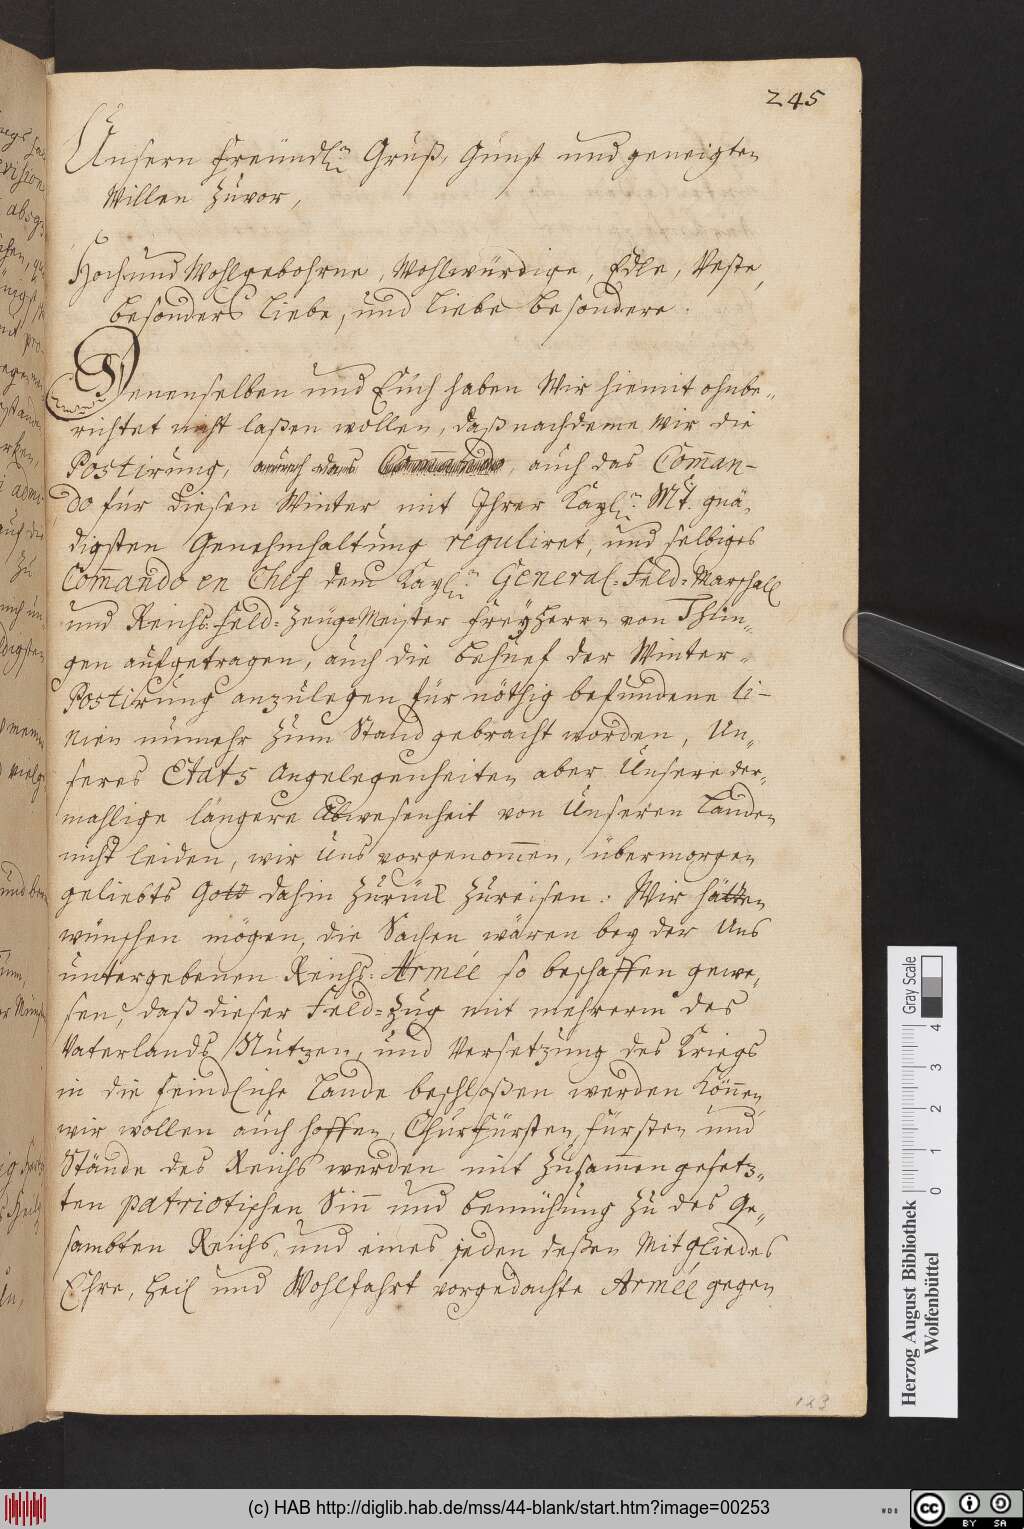 245
Unsern freündl:n Gruß, Gunst und geneigten
Willen zuvor,
Hoch und Wohlgebohrne, Wohlwürdige, Edle, Veste,
besonders Liebe, und Liebe besondere.
Denenselben und Euch haben Wir hiemit ohnbe-
richtet nicht laßen wollen, daß nachdeme wir die
Postirung, auch das Commando, auch das Com̄an-
do für diesen Winter mit Ihrer Kayl:n Mt. gnä-
digsten Genehmhaltung reguliret, und selbiges
Com̄ando en Chef dem Kayl:n General-Feld-Marschall
und Reichs-Feld-Zeug-Meister Freyherrn von Thün-
gen aufgetragen, auch die behuef der Winter-
Postirung anzulegen für nöthig befundene Li-
nien nunmehr zum Stand gebracht worden, Un-
seres Etats Angelegenheiten aber Unsere der-
mahlige längere Abwesenheit von Unseren Landen
nicht leiden, wir Uns vorgenom̄en, übermorgen
geliebts Gott dahin zurück zureisen. Wir hätten
wünschen mögen, die Sachen wären bey der Uns
untergebenen Reichs-Armée so beschaffen gewe-
sen, daß dieser Feld-Zug mit mehrerm des
Vaterlands Nutzen, und Versetzung des Kriegs
in die feindliche Lande beschloßen werden kön̄en,
wir wollen auch hoffen, Churfürsten, Fürsten und
Stände des Reichs werden mit zusam̄en gesetz-
ten patriotischen Sin̄ und bemühung zu des Ge-
sambten Reichs, und eines jeden deßen Mitgliedes
Ehre, Heil und Wohlfahrt vorgedachte Armée gegen
123
Herzog August Bibliothek
Wolfenbüttel
Gray Scale
0 1 2 3 4
(c) HAB http://diglib.hab.de/mss/44-blank/start.htm?image=00253
WDB
cc BY SA